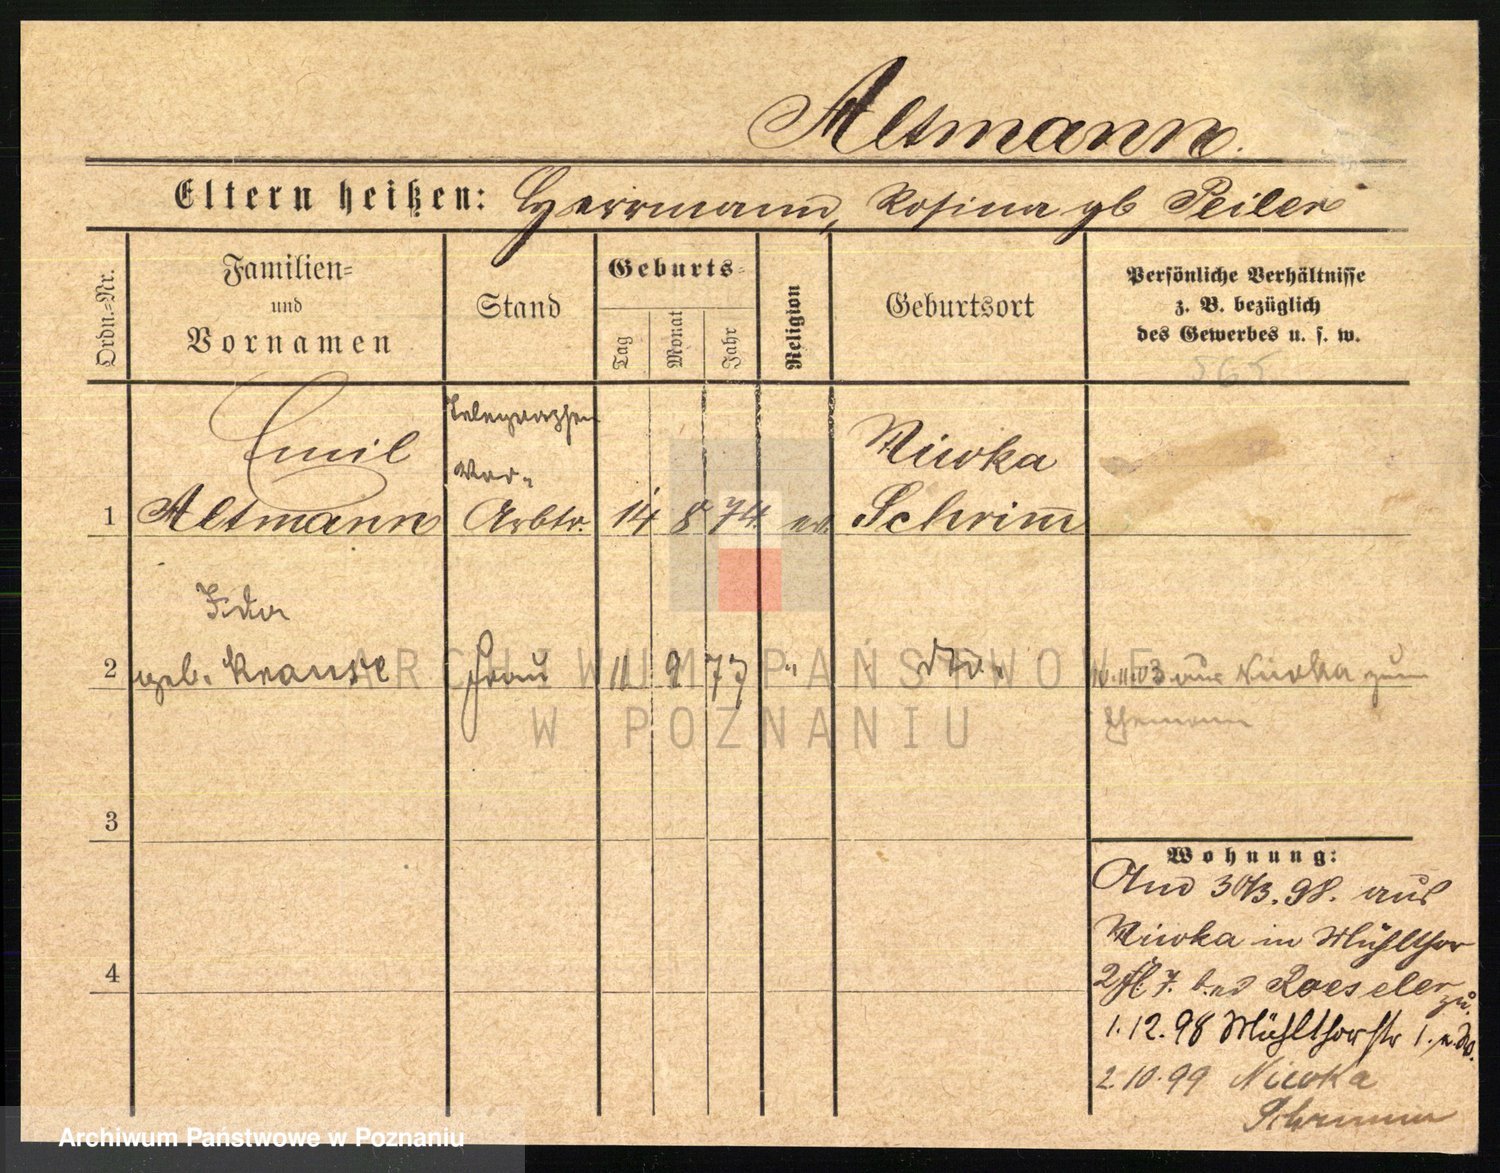 Altmann.
Eltern heißen: Herrmann, Rosina gb Peiler
Ordn.=Nr.
Familien=
und
Vornamen
Stand
Geburts=
Tag
Monat
Jahr
Religion
Geburtsort
Persönliche Verhältnisse
z. B. bezüglich
des Gewerbes u. s. w.
565
Emil
Telegraphen
Vor-
Niwka
1 Altmann Arbtr. 14 8 74 ev. Schrim
Ida
2 geb. Krause Frau 11 9 77 " dto. 10.11.03 aus Niwka zum
Ehemann
3
Wohnung:
And 30/3.98. aus
Niwka in Mühlthor
4
2 7. bei Roeseler zu.
1.12.98 Mühlthorstr 1.
2.10.99 Niwka
Schrimm
ARCHIWUM PAŃSTWOWE
W POZNANIU
Archiwum Państwowe w Poznaniu